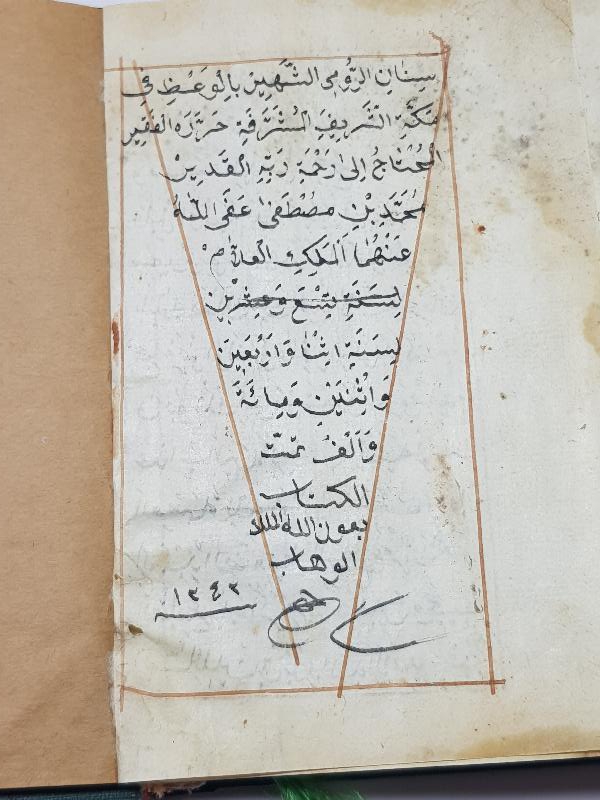 سِنَانِ الرُّومِى الشَّهِيْرِ بِالْوَعْظِ فِى
مَكَّةِ الشَّرِيفَةِ الْمُشَرَّفَةِ حَرَّرَهُ الْفَقِيْر
الْمُحْتَاجُ اِلٰى رَحْمَةِ رَبِّهِ الْقَدِيْرْ
مُحَمَّدِ بْنِ مُصْطَفٰى عَفَى اللّٰهُ
عَنْهُمَا الْمَلِكِ الْعَلَّامْ
لِسَنَةِ تِسْعَ وَعِشْرِيْنَ
لِسَنَةِ اثْنَا وَاَرْبَعِيْنَ
وَاثْنَيْنِ وَمِائَةَ
وَاَلْفْ تمّت
الكتاب
بعون الله الملك
الوهاب
١٢٤٢